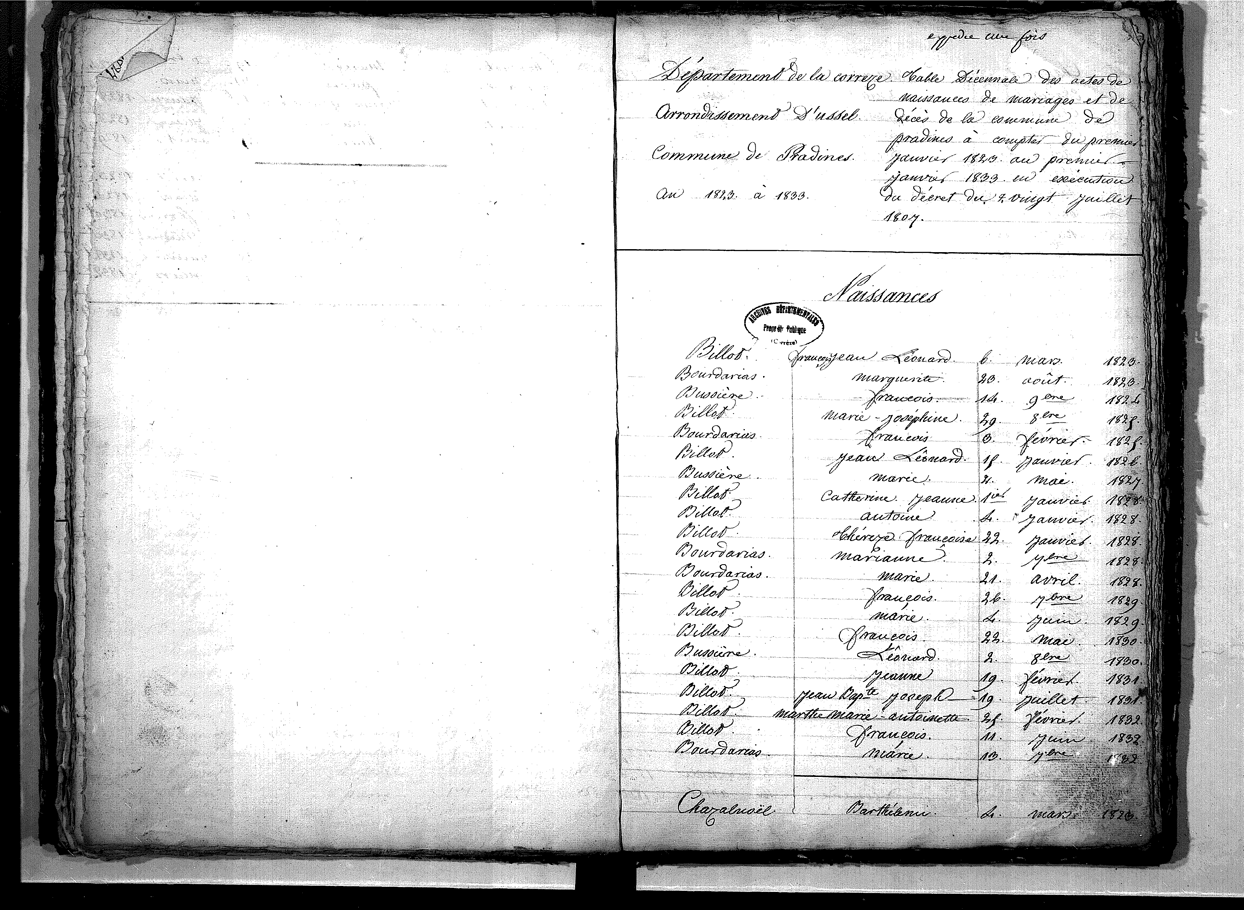 expédié une fois
Département de la correze
Arrondissement D'ussel.
Commune de Pradines.
An 1823. à 1833.
Table Décennale des actes de
naissances de mariages et de
décès de la commune de
pradines à compter du premier
janvier 1823 au premier
janvier 1833 en exécution
du décret du vingt juillet
1807.
Naissances
ARCHIVES DÉPARTEMENTALES
Propriété Publique
(Corrèze)
Billot. françois jean Léonard. 6. mars. 1823.
Bourdarias. marguerite 23. août. 1823.
Bussière. françois. 14. 9bre 1824
Billot. marie-joséphine. 29. 8bre 1825.
Bourdarias. françois 3. février. 1825.
Billot. jean Léonard. 15. janvier. 1826.
Bussière. marie. 2. mai. 1827
Billot. Catherine jeanne. 1ier janvier 1828.
Billot. antoine 4. janvier. 1828.
Billot. thérèze françoise 22. janvier. 1828
Bourdarias. marianne. 2. 7bre 1828.
Bourdarias. marie. 21. avril. 1828.
Billot. françois. 26. 7bre 1829
Billot. marie. 4. juin. 1829.
Billot. françois. 22. mai. 1830.
Bussière. Léonard. 2. 8bre 1830.
Billot. jeanne 19. février. 1831.
Billot. jean Bapte joseph 19. juillet. 1831.
Billot. marthe marie-antoinette 25. février. 1832.
Billot. françois. 11. juin. 1832
Bourdarias. marie. 13. 7bre 1832
Chazalnoël Barthélemi. 4. mars. 1823.